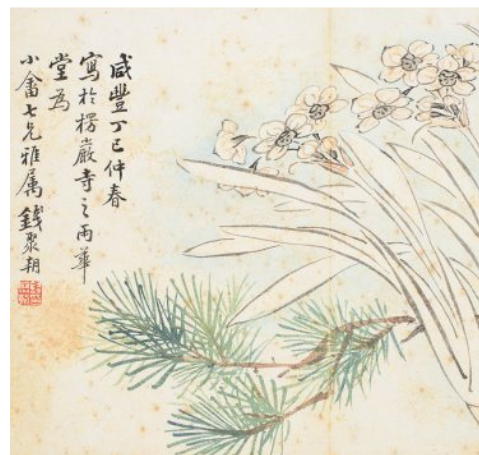 咸豐丁巳仲春
寫於楞嚴寺之雨華
堂為
小畬七兄雅属 錢聚朝